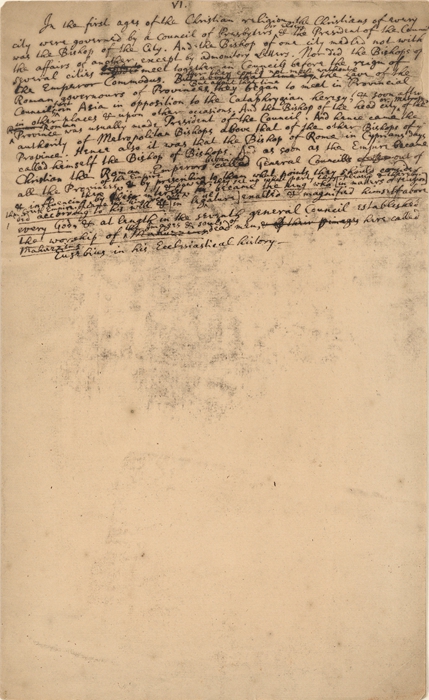 VI.
In the first ages of the Christian religion the Christians of every
city were governed by a Council of Presbyters, & the President of the Council
was the Bishop of the City. And the Bishop of one city medled not with
the affairs of another except by admonitory letters. Nor did the Bishops of
several cities meet together in Councils before the reign of
the Emperor Commodus.
Roman governors of Provinces they began to meet in Provincial
Councils in Asia in opposition to the Cataphrygian heresy, & soon after
in other places & upon other occasions, And the Bishop of the head city
Province was usually made President of the Council. And hence came the
authority of Metropolitan Bishops above that of the other Bishops
Province. Hence also it was that the Bishop of Rome in Cyprians days
called himself the Bishop of Bishops. And as soon as the Empire became
Christian the Roman Emperors called General Councils out of
all the Provinces &
did according to his will & exalted & magnified himself above
every God, & at length in the seventh general Council established
the worship of dead men, here called
Mahuzzims
Eusebius in his Ecclesiastical history.